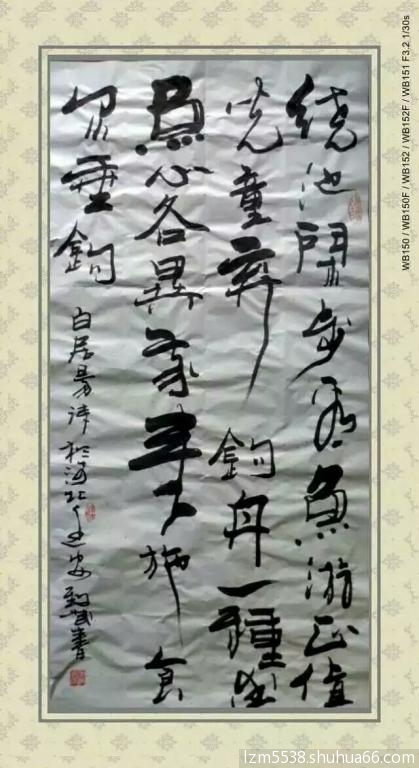 绕池閒步看魚游正值
児童弄釣舟一種愛
魚心各異我来施食
尔垂鈎 白居易诗 於河北迁安 書
WB150 / WB150F / WB152 / WB152F / WB151 F3.2 1/30s
lzm5538.shuhua66.com